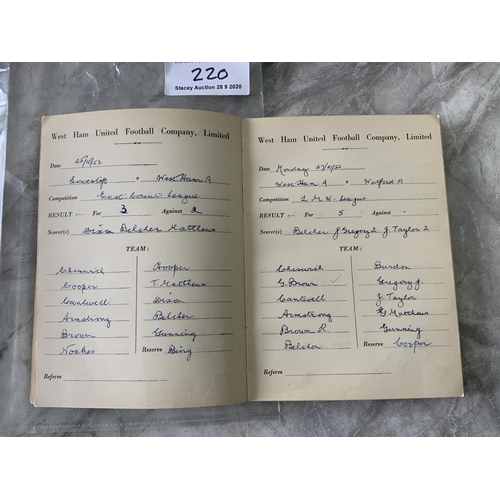 220
Stacey Auction 28 9 2020
West Ham United Football Company, Limited
Date
Lowestoft v West Ham A
Competition East Counties League
RESULT :— For 3 Against 2
Scorer(s) Dixon Belcher Matthews
TEAM:
Chiswick Hooper
Cooper T. Matthews
Cantwell Dixon
Armstrong Belcher
Brown Gunning
Noakes Reserve Bing
Referee
West Ham United Football Company, Limited
Date Monday
West Ham A v Watford A
Competition L M W League
RESULT :— For 5 Against
Scorer(s) Belcher J Gregory 2 J Taylor 2
TEAM:
Chiswick Burdon
G. Brown Gregory J.
Cantwell J Taylor
Armstrong Matthews
Brown R Gunning
Belcher Reserve Cooper
Referee